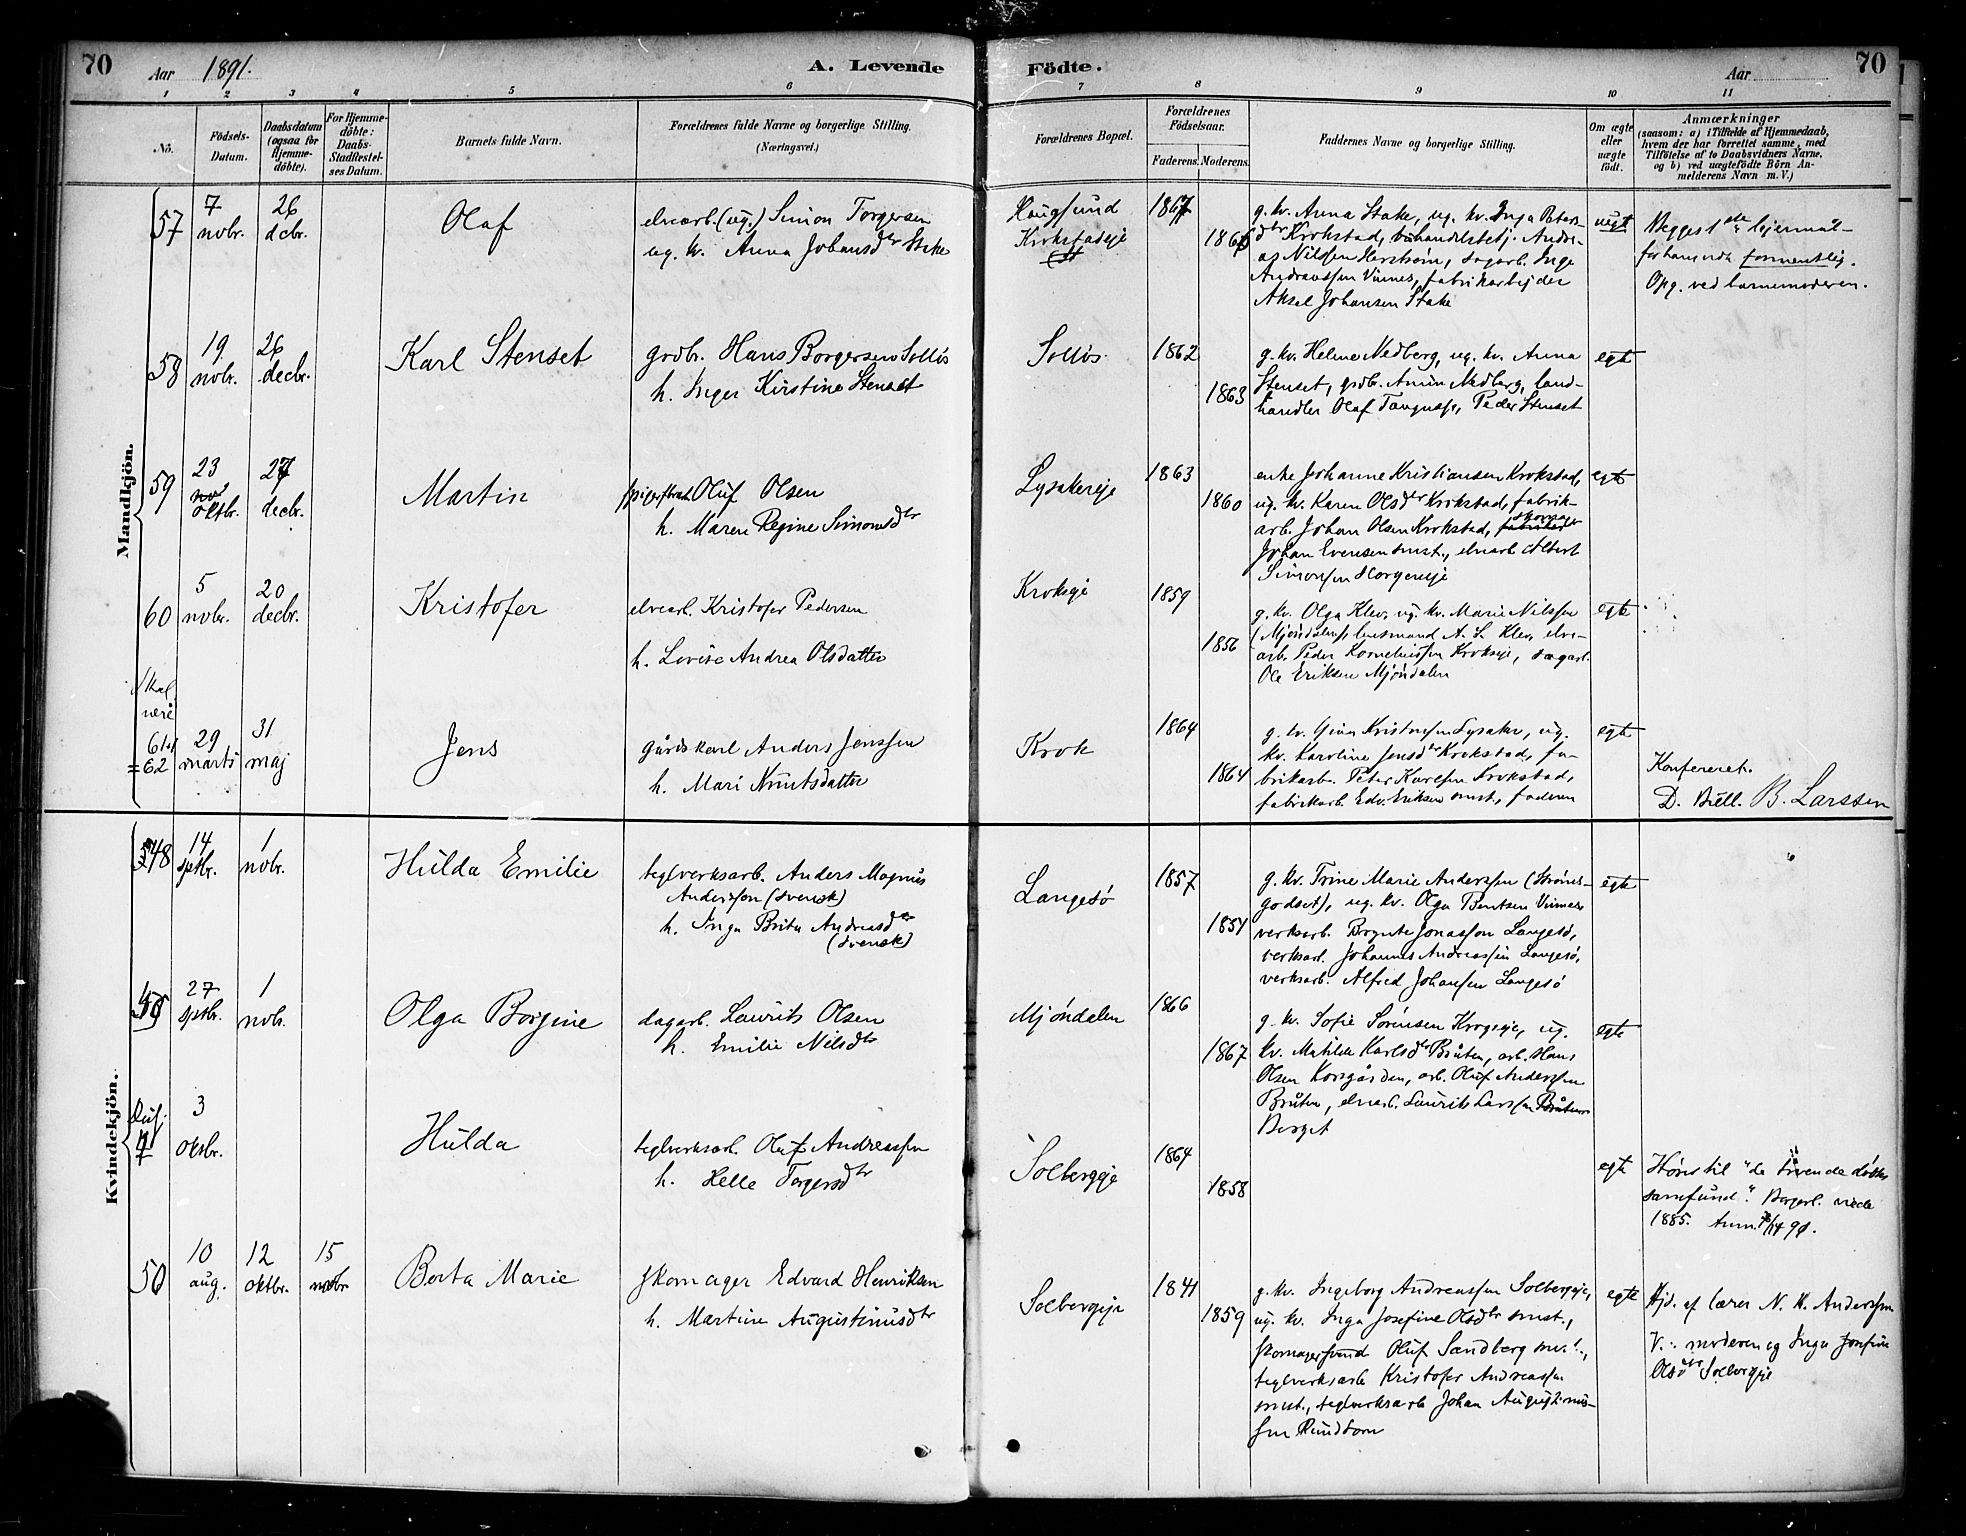 70
Aar 1891.
A. Levende
Födte.
Aar
70
1 2 3 4 5 6 7 8 9 10 11
No.
Födsels-
Datum.
Daabsdatum
(ogsaa for
Hjemme-
döbte).
For Hjemme-
döbte:
Daabs-
Stadfæstel-
ses Datum.
Barnets fulde Navn.
Forældrenes fulde Navne og borgerlige Stilling.
(Næringsvei.)
Forældrenes Bopæl.
Forældrenes
Födselsaar.
Faderens. Moderens.
Faddernes Navne og borgerlige Stilling.
Om ægte
eller
uægte
födt.
Anmærkninger
(saasom: a) i Tilfælde af Hjemmedaab,
hvem der har forrettet samme, med
Tilföielse af to Daabsvidners Navne,
og b) ved uægtefödte Börn An-
melderens Navn m. V.)
Mandkjön.
57
7
nobr.
26
dcbr.
Olaf
elvearb. (ug.) Simon Torgersen
ug. kv. Anna Johansdtr Stake
Haugsund
Krokstadeje
1867
g. kv. Anna Stake, ug. kv. Inga Peters-
dtr Krokstad, Andre-
as Nilssen sagarb. Inge
Andreassen Vinnes, fabrikarbejder
Aksel Johansen Stake
uegt
Begges 1ste lejermål
formentlig.
Opg. ved barnemoderen.
58
19
nobr.
26
decbr.
Karl Stenset
grdbr. Hans Borgersen Solløs
h. Inger Kirstine Stenset
Solløs
1862
1863
g. kv. Helene Nedberg, ug. kv. Anna
Stenset, grdbr. Nedberg, land-
handler Olaf Peder Stenset
egte
59
23
oktbr.
27
decbr.
Martin
Oluf Olsen
h. Maren Regine Simonsdtr
Lysakereje
1863
1860
enke Johanne Kristiansen Krokstad,
ug. kv. Karen Olsdtr Krokstad, fabrik-
arb. Johan Olsen Krokstad,
Johan Evensen smst., elvearb. Albert
Simonsen Horgeneje
egte
60
5
nobr.
20
decbr.
Kristofer
elvearb. Kristofer Pedersen
h. Lovise Andrea Olsdatter
Krokseje
1859
1856
g. kv. Olga Klev, ug. kv. Marie Nilssen
(Mjøndalen), lensmand A. L. Klev, elve-
arb. Peder Korneliussen Krokseje, sagarb.
Ole Eriksen Mjøndalen
egte
Skal
være
= 62
29
marts
31
maj
Jens
gårdskarl Anders Jenssen
h. Mari Knutsdatter
Krok
1864
1864
g. kv. Gina Kristensen Lysaker, ug.
kv. Karoline Jensdtr Krokstad, fa-
brikarb. Peter Karlsen Krokstad,
fabrikarb. Edv. Eriksen smst., faderen
egte
Konfereret.
D. Bull. B. Larssen
Kvindekjön.
48
14
sptbr.
1
nobr.
Hulda Emilie
teglverksarb. Anders Magnus
Andersson (svensk)
h. Inga Brita Andreasdtr
(svensk)
Langesø
1857
1854
g. kv. Trine Marie Anderssen (Strøms-
godset), ug. kv. Olga Bentsen Vinnes
verksarb. Jonasson Langesø,
verksarb. Johannes Andreassen Langesø,
verksarb. Alfred Johansen Langesø
egte
27
sptbr.
1
nobr.
Olga Borgine
dagarb. Laurits Olsen
h. Emilie Nilsdtr
Mjøndalen
1866
1867
g. kv. Sofie Sørensen Krogseje, ug.
kv. Matilde Karlsdtr Bråten, arb. Hans
Olsen Korsgården, arb. Oluf Anderssen
Bråten, elvearb. Laurits Larssen Bråten
Berget
egte
7
3
oktbr.
Hulda
teglverksarb. Oluf Andreassen
h. Helle Torgersdtr
Solbergeje
1864
1858
egte
Hører til "de troende døbtes
samfund". Borgerl. viede
1885. Anm.
50
10
aug.
12
oktbr.
15
nobr.
Berta Marie
skomager Edvard Henriksen
h. Martine Augustinusdtr
Solbergeje
1841
1859
g. kv. Ingeborg Andreassen Solbergeje,
ug. kv. Inga Josefine Olsdtr smst.,
skomagersvend Oluf Sandberg smst.,
teglverksarb. Kristofer Andreassen
smst., teglverksarb. Johan Augustinus-
sen Rundtom
egte
Hjd. af lærer N. H. Anderssen
V.: moderen og Inga Josefine
Olsdtr Solbergeje